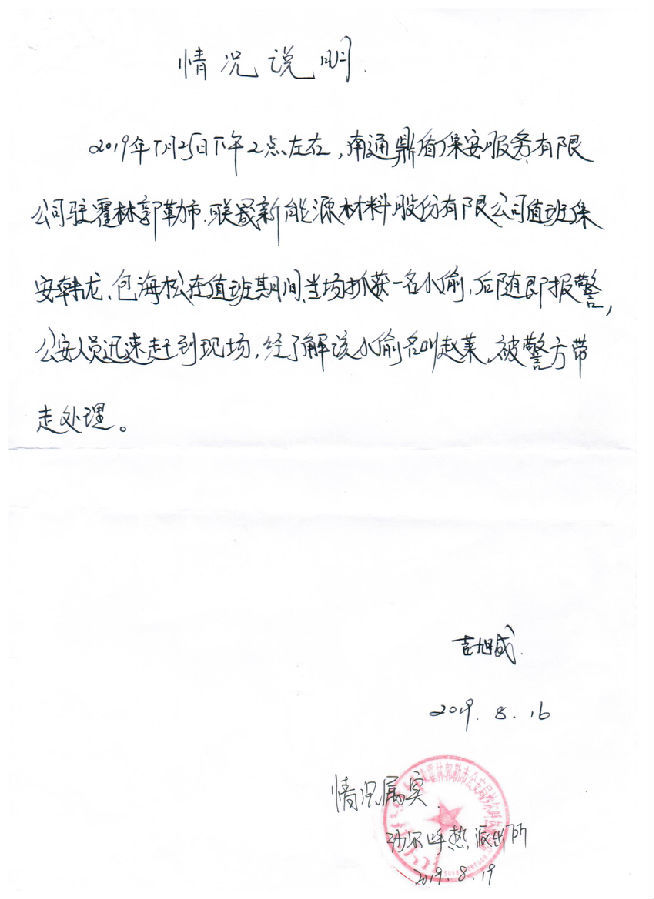 情况说明.
2019年7月25日下午2点左右,南通鼎盾保安服务有限
公司驻霍林郭勒市、联晟新能源材料股份有限公司值班保
安韩龙、包海松在值班期间,当场抓获一名小偷,后随即报警,
公安人员迅速赶到现场,经了解该小偷名叫赵某,被警方带
走处理。
吉旭成.
2019.8.16
情况属实.
派出所
2019.8.19